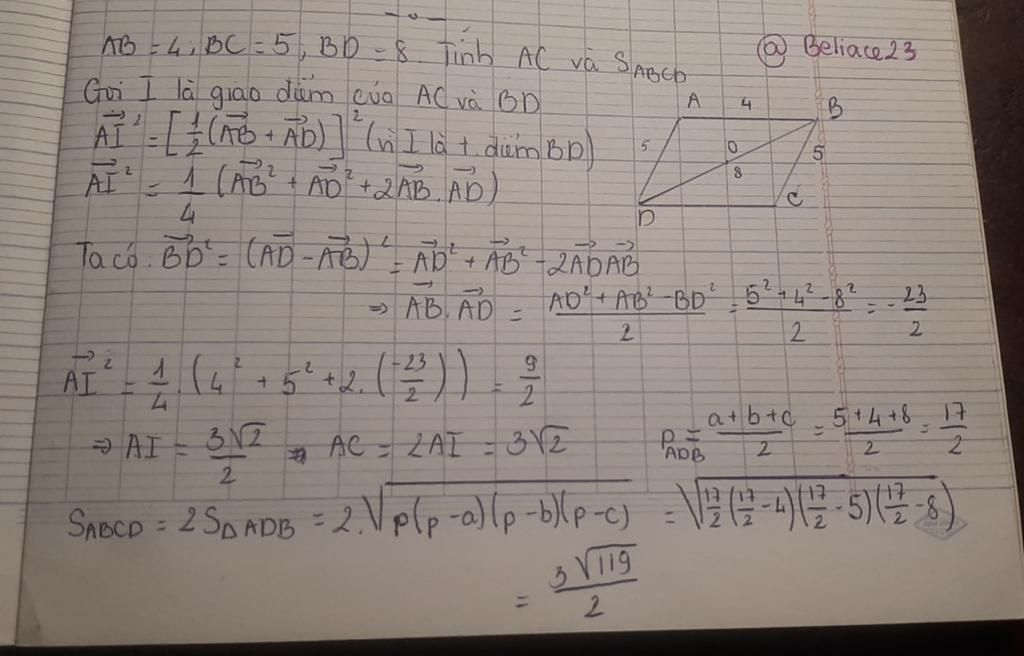 AB = 4, BC = 5, BD = 8. Tính AC và S_ABCD
@ Beliace23
Gọi I là giao điểm của AC và BD
A 4 B
5 O 5
8
D C
AI⃗² = [1/2(AB⃗ + AD⃗)]² (vì I là t. điểm BD)
AI⃗² = 1/4 (AB⃗² + AD⃗² + 2AB⃗.AD⃗)
Ta có: BD⃗² = (AD⃗ - AB⃗)² = AD⃗² + AB⃗² - 2AD⃗AB⃗
⇒ AB⃗.AD⃗ = (AD² + AB² - BD²)/2 = (5² + 4² - 8²)/2 = -23/2
AI⃗² = 1/4.(4² + 5² + 2.(-23/2)) = 9/2
⇒ AI = 3√2/2 ⇒ AC = 2AI = 3√2
p_ADB = (a+b+c)/2 = (5+4+8)/2 = 17/2
S_ABCD = 2S_DADB = 2.√(p(p-a)(p-b)(p-c)) = √(17/2(17/2-4)(17/2-5)(17/2-8))
= 3√119/2